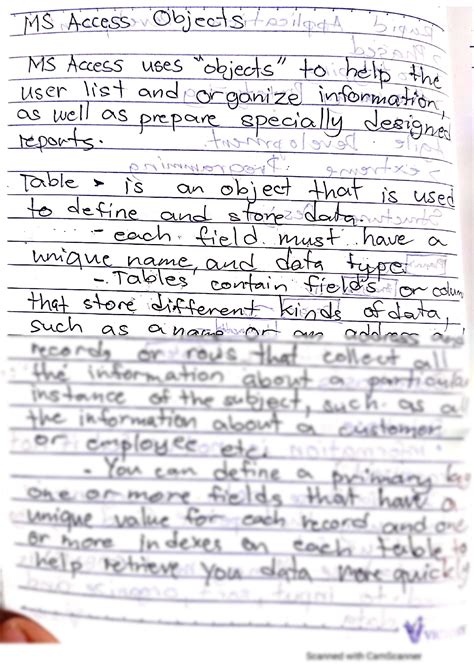 MS Access Objects
MS Access uses "objects" to help the
user list and organize information,
as well as prepare specially designed
reports.
Table > is an object that is used
to define and store data.
- each field must have a
unique name, and data type.
- Tables contain fields or colum
that store different kinds of data,
such as a name or an address and
records or rows that collect all
the information about a particular
instance of the subject, such as all
the information about a customer
or employee etc.
- You can define a primary key
one or more fields that have a
unique value for each record and one
or more indexes on each table to
help retrieve you data more quickly
Scanned with CamScanner